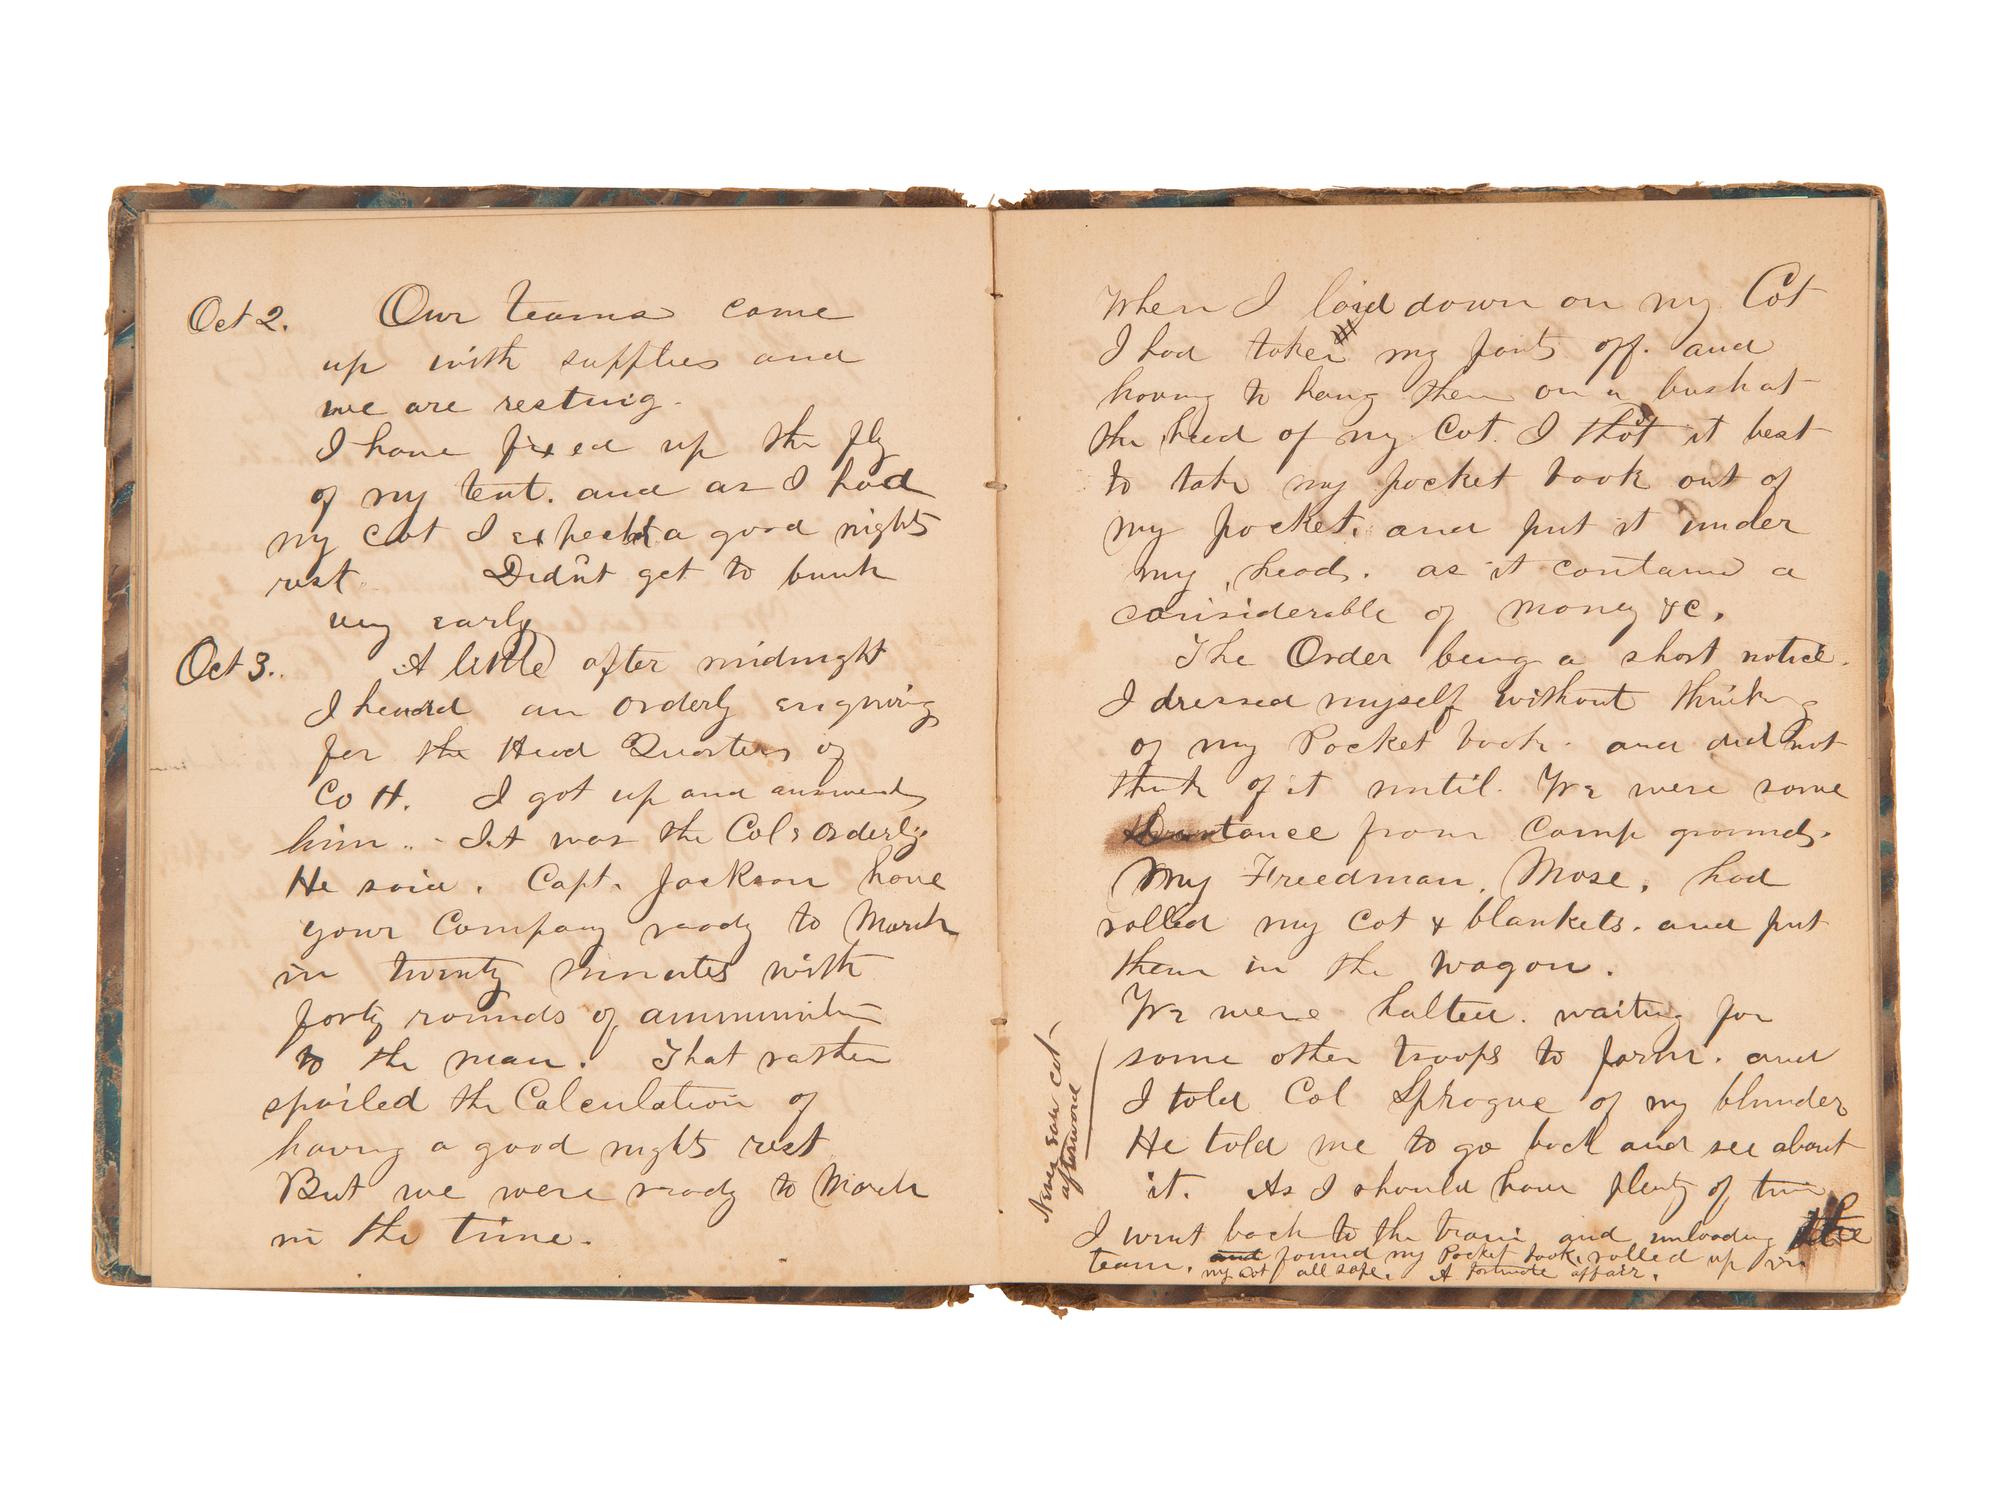 Oct 2. Our teams came
up with supplies and
we are resting.
I have fixed up the fly
of my tent. and as I had
my Cot I expect a good nights
rest. Didn't get to bunk
very early
Oct 3. A little after midnight
I heard an orderly enquiring
for the Head Quarters of
Co H. I got up and answered
him. - It was the Cols Orderly.
He said. Capt. Jackson have
your Company ready to March
in twenty minutes with
forty rounds of ammunition
to the man. That rather
spoiled the Calculation of
having a good nights rest
But we were ready to March
in the time.
When I laid down on my Cot
I had taken my pants off. and
having to hang them on a bush at
the head of my Cot. I thot it best
to take my pocket book out of
my pocket. and put it under
my head. as it contained a
considerable of money &c.
The Order being a short notice.
I dressed myself without thinking
of my Pocket book. and did not
think of it until. We were some
Distance from Camp grounds.
My Freedman, Mose, had
rolled my Cot & blankets. and put
them in the wagon.
We were halted. waiting for
some other troops to form. and
I told Col Sprague of my blunder
He told me to go back and see about
it. As I should have plenty of time
I went back to the train and unloading the
team. and found my Pocket book, rolled up in
my cot all safe. A fortunate affair.
Never saw cot
afterward